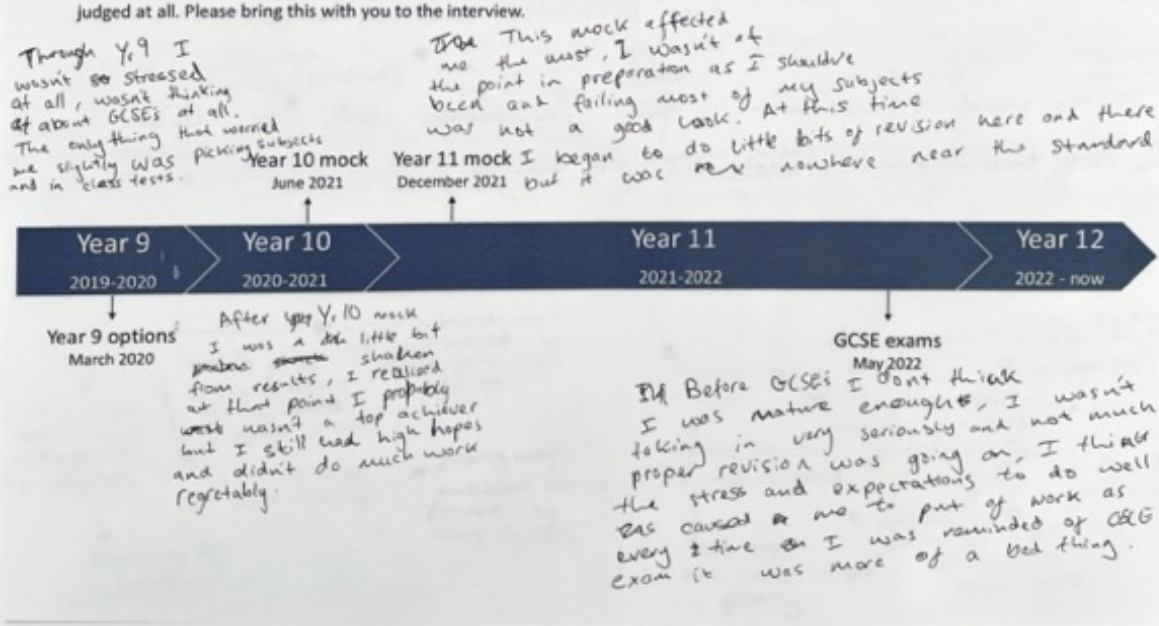 judged at all. Please bring this with you to the interview.
Through Y,9 I
wasn't so stressed
at all, wasn't thinking
about GCSEs at all.
The only thing that worried
me slightly was picking subjects
and in class tests.
This mock affected
me the most, I wasn't at
the point in preparation as I should've
been and failing most of my subjects
was not a good look. At this time
I began to do little bits of revision here and there
but it was nowhere near the standard
Year 10 mock
June 2021
Year 11 mock
December 2021
Year 9
2019-2020
Year 10
2020-2021
Year 11
2021-2022
Year 12
2022 - now
Year 9 options
March 2020
After Y,10 mock
I was a little bit
shaken
from results, I realised
at that point I propably
wasn't a top achiever
but I still had high hopes
and didn't do much work
regretably.
GCSE exams
May 2022
Before GCSEs I dont think
I was mature enough, I wasn't
taking in very seriously and not much
proper revision was going on, I think
the stress and expectations to do well
caused me to put of work as
every time I was reminded of
exam it was more of a bad thing.